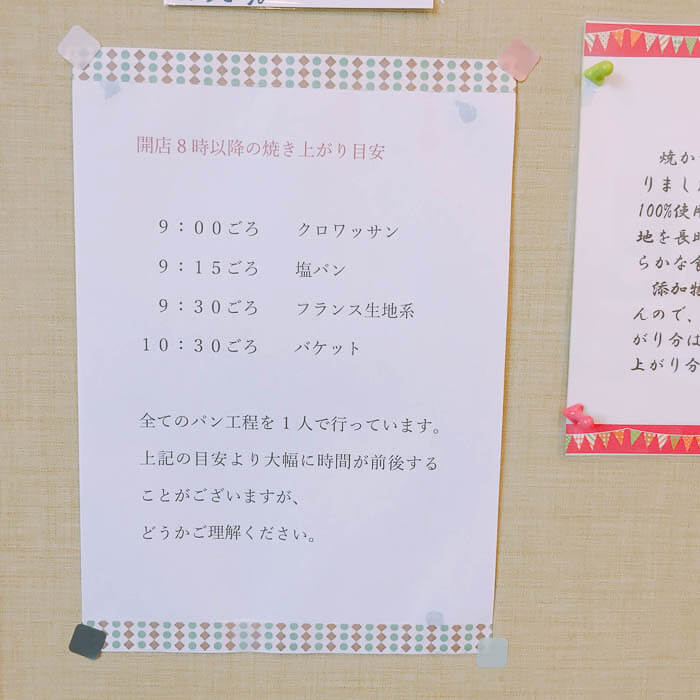 開店８時以降の焼き上がり目安
９：００ごろ　クロワッサン
９：１５ごろ　塩パン
９：３０ごろ　フランス生地系
１０：３０ごろ　バケット
全てのパン工程を１人で行っています。
上記の目安より大幅に時間が前後する
ことがございますが、
どうかご理解ください。
焼か
りまし
100%使用
地を長
らかな
添加物
んので、
がり分は
上がり分